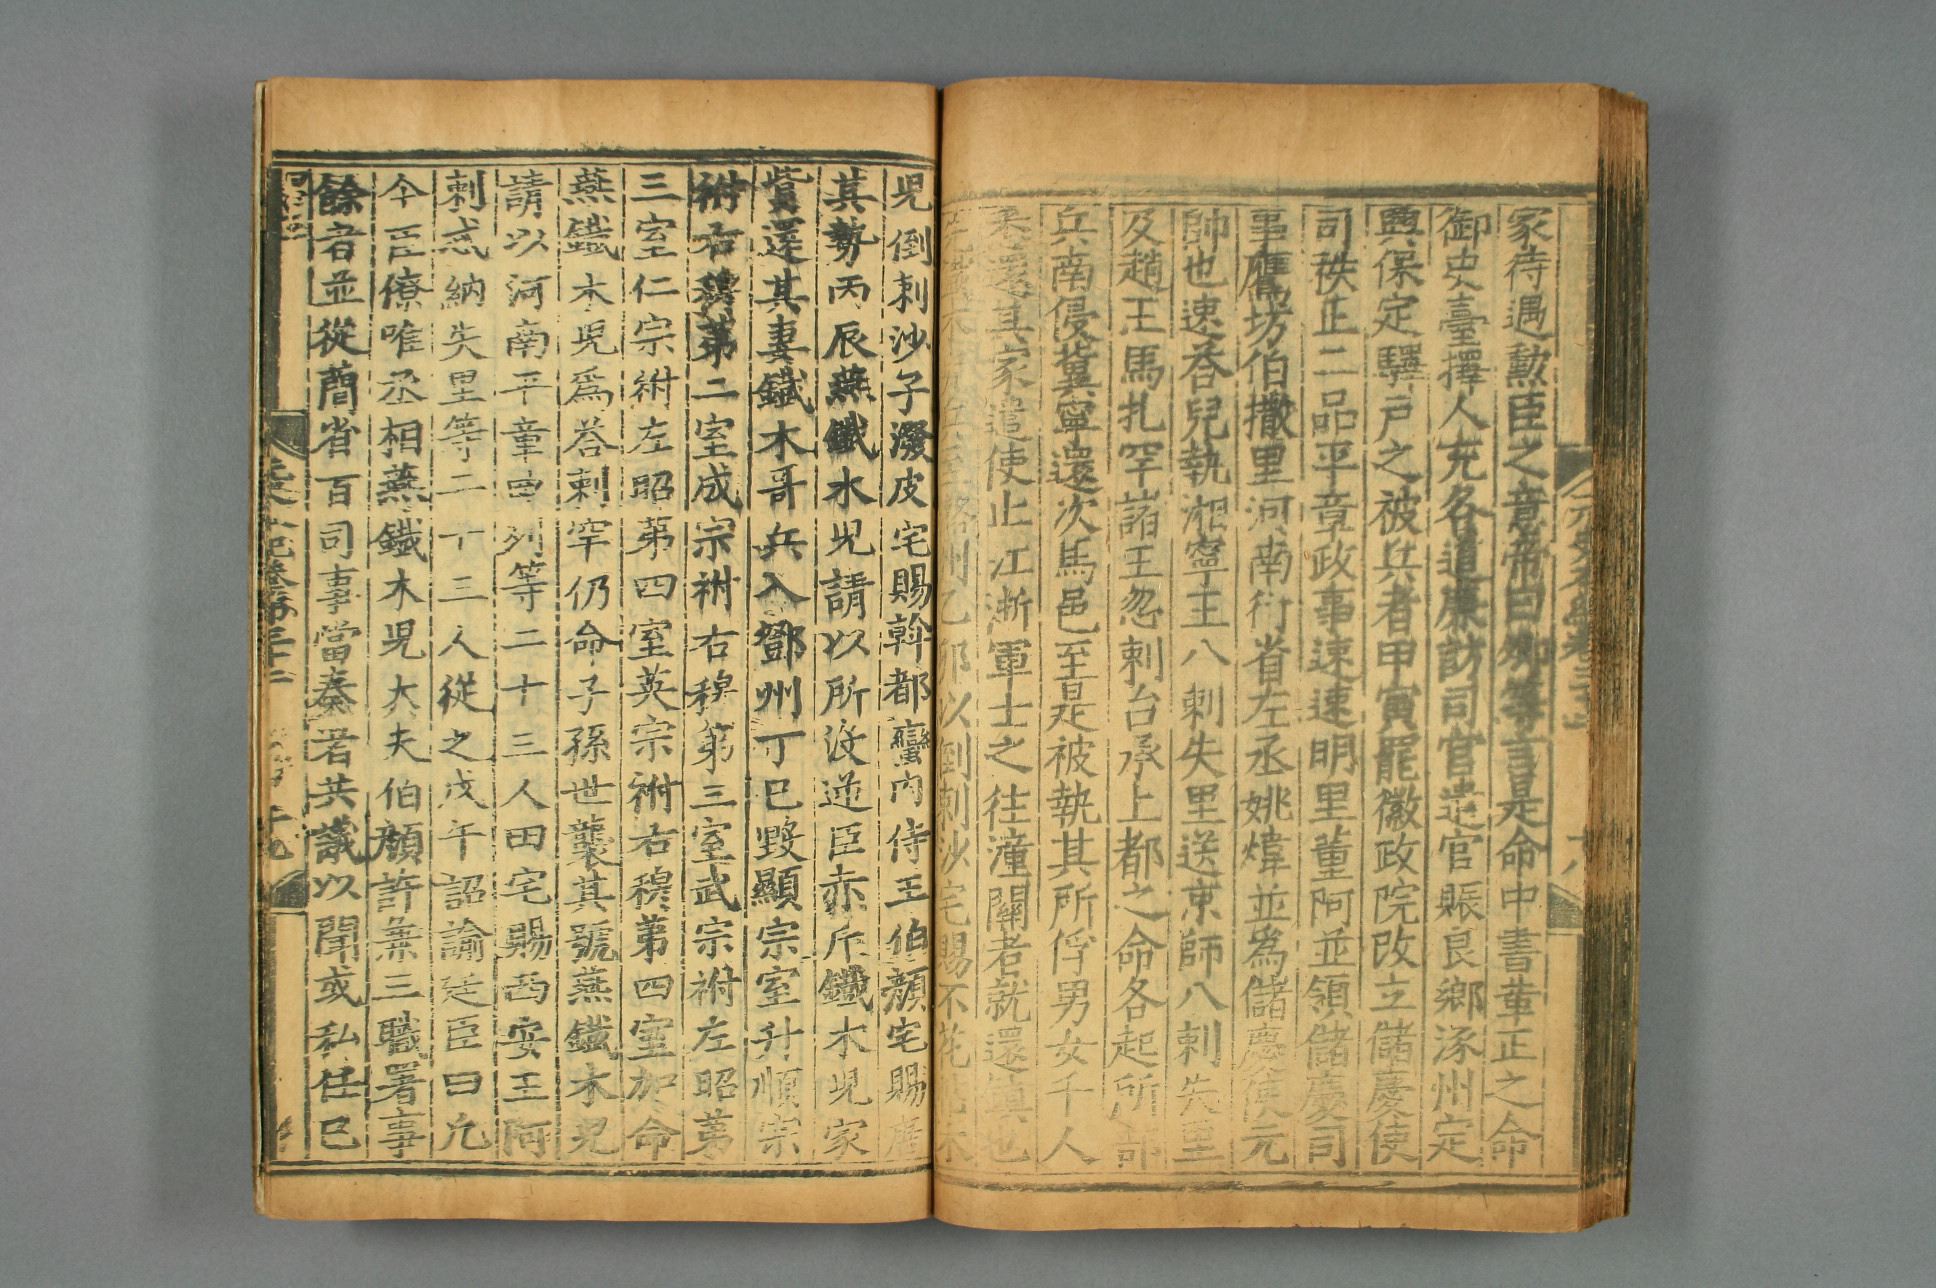 家待遇勲臣之意帝曰卿等言是命中書董正之命
御史臺擇人充各道廉訪司官遣官賑良鄉涿州定
興保定驛戸之被兵者甲寅罷徽政院改立儲慶使
司秩正二品平章政事速速明里董阿並領儲慶司
事鷹坊伯撒里河南行省左丞姚煒並為儲慶使元
帥也速荅兒執湘寧王八剌失里送京師八剌失里
及趙王馬扎罕諸王忽剌台承上都之命各起所部
兵南侵冀寧還次馬邑至是被執其所俘男女千人
悉還其家遣使止江浙軍士之往潼關者就還鎮也
以倒剌沙宅賜不花帖木
兒倒剌沙子潑皮宅賜斡都蠻内侍王伯顔宅賜唐
其勢丙辰燕鐵木兒請以所没逆臣赤斤鐵木兒家
貲還其妻鐵木哥兵入鄧州丁巳毀顯宗室升順宗
祔右穆第二室成宗祔右穆第三室武宗祔左昭第
三室仁宗祔左昭第四室英宗祔右穆第四室加命
燕鐵木兒爲荅剌罕仍命子孫世襲其號燕鐵木兒
請以河南平章曲列等二十三人田宅賜西安王阿
剌忒納失里等二十三人從之戊午詔諭廷臣曰凡
今臣僚唯丞相燕鐵木兒大夫伯顔許兼三職署事
餘者並從簡省百司事當奏者共議以聞或私任己